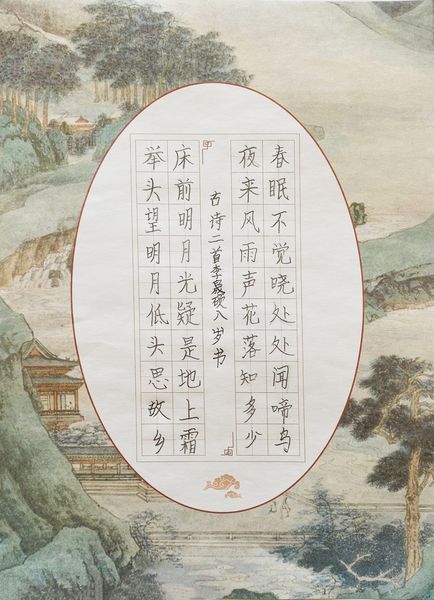 春眠不觉晓处处闻啼鸟
夜来风雨声花落知多少
古诗二首李八岁书
床前明月光疑是地上霜
举头望明月低头思故乡